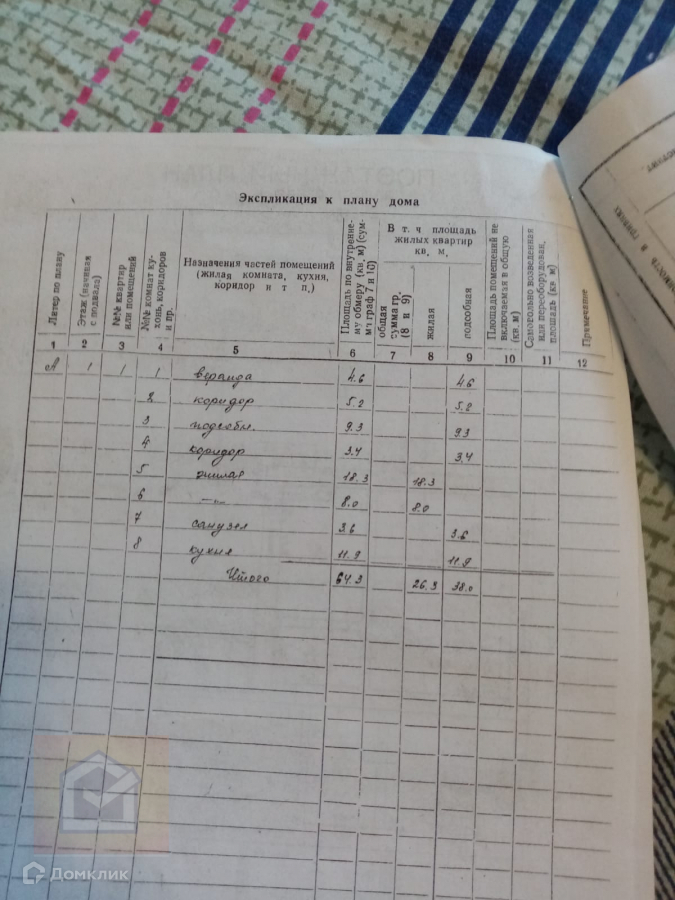 Экспликация к плану дома
Литер по плану
Этаж (начиная с подвала)
№№ квартир или помещений
№№ комнат кухонь, коридоров и пр.
Назначения частей помещений
(жилая комната, кухня,
коридор и т п,)
Площадь по внутреннему обмеру (кв, м) (сумма граф 7 и 10)
В т. ч площадь
жилых квартир
кв, м,
общая сумма гр. (8 и 9)
жилая
подсобная
Площадь помещений не включаемая в общую (кв. м)
Самовольно возведенная или переоборудован, площадь (кв м)
Примечание
1 2 3 4 5 6 7 8 9 10 11 12
А 1 1 1 веранда 4.6 4.6
2 коридор 5.2 5.2
3 подсобн. 9.3 9.3
4 коридор 3.4 3.4
5 жилая 18.3 18.3
6 —"— 8.0 8.0
7 санузел 3.6 3.6
8 кухня 11.9 11.9
Итого 64.3 26.3 38.0
Домклик